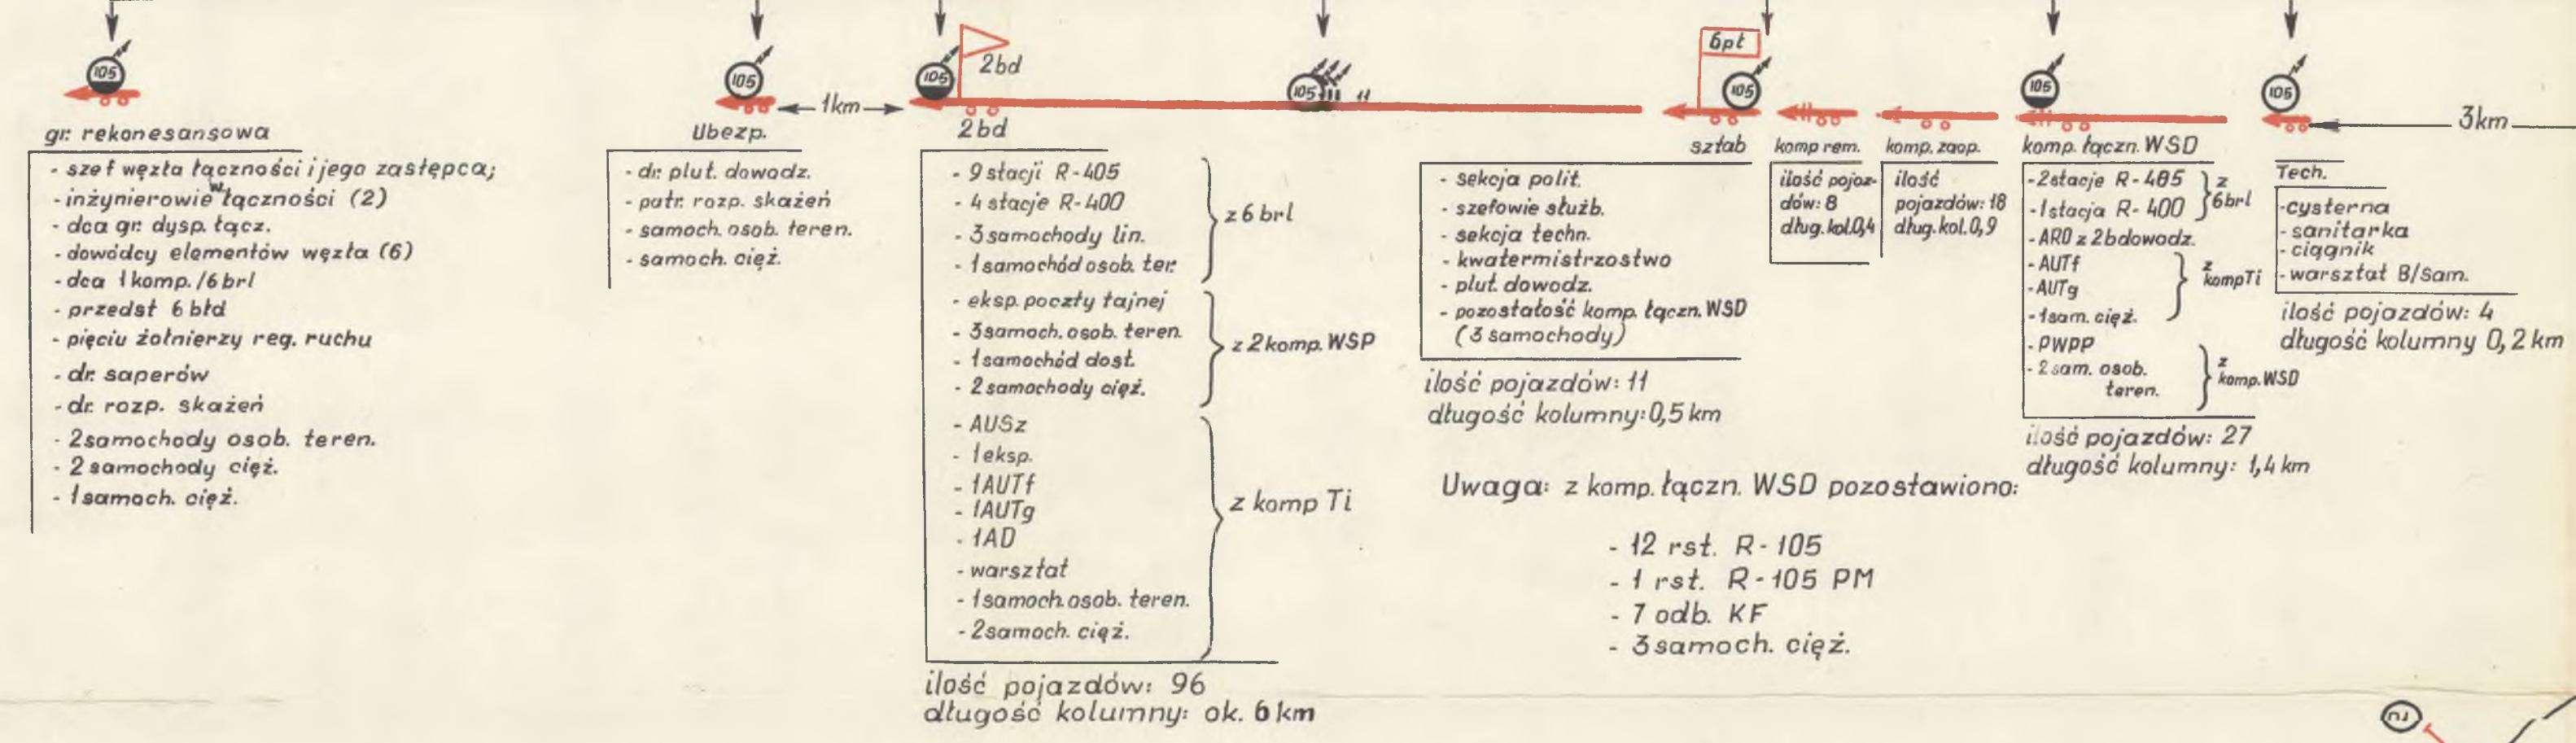 105
105
1km
105
2bd
105
11
6pt
105
105
105
3km
gr. rekonesansowa
- szef węzła łączności i jego zastępca;
- inżynierowie w łączności (2)
- dca gr. dysp. łącz.
- dowódcy elementów węzła (6)
- dca 1 komp./6 brl
- przedst 6 błd
- pięciu żołnierzy reg. ruchu
- dr. saperów
- dr. rozp. skażeń
- 2 samochody osob. teren.
- 2 samochody cięż.
- 1 samoch. cięż.
Ubezp.
- dr. plut. dowodz.
- patr. rozp. skażeń
- samoch. osob. teren.
- samoch. cięż.
2bd
- 9 stacji R-405
- 4 stacje R-400
- 3 samochody lin.
- 1 samochód osob. ter.
z 6 brl
- eksp. poczty tajnej
- 3 samoch. osob. teren.
- 1 samochód dost.
- 2 samochody cięż.
z 2 komp. WSP
- AUSz
- 1 eksp.
- 1AUTf
- 1AUTg
- 1AD
- warsztat
- 1 samoch. osob. teren.
- 2 samoch. cięż.
z komp Ti
ilość pojazdów: 96
długość kolumny: ok. 6 km
sztab
- sekcja polit.
- szefowie służb.
- sekcja techn.
- kwatermistrzostwo
- plut. dowodz.
- pozostałość komp. łączn. WSD
(3 samochody)
ilość pojazdów: 11
długość kolumny: 0,5 km
komp rem.
ilość pojaz-
dów: 8
dług. kol. 0,4
komp. zaop.
ilość
pojazdów: 18
dług. kol. 0,9
komp. łączn. WSD
- 2 stacje R-405
- 1 stacja R-400
z
6brl
- ARO z 2b dowodz.
- AUTf
- AUTg
- 1 sam. cięż.
z
komp Ti
- PWPP
- 2 sam. osob.
teren.
z
komp. WSD
ilość pojazdów: 27
długość kolumny: 1,4 km
Tech.
- cysterna
- sanitarka
- ciągnik
- warsztat B/Sam.
ilość pojazdów: 4
długość kolumny 0,2 km
Uwaga: z komp. łączn. WSD pozostawiono:
- 12 rst. R-105
- 1 rst. R-105 PM
- 7 odb. KF
- 3 samoch. cięż.